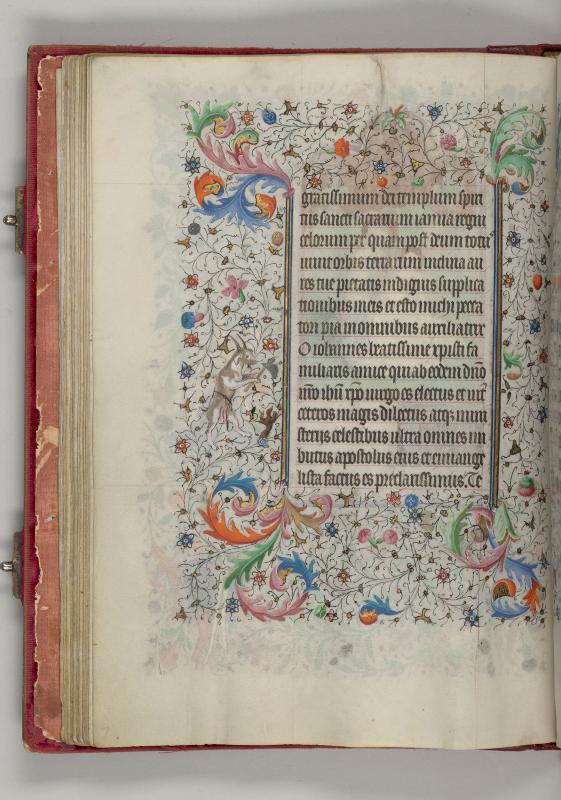 gratissimum dei templum spiri
tus sancti sacrarium ianua regni
celorum per quam post deum totus
viuit orbis terrarum inclina au
res tue pietatis indignis supplica
tionibus meis et esto michi pecca
tori pia in omnibus auxiliatrix
O iohannes beatissime xpisti fa
miliaris amice qui ab eodem dno
nro ihu xpo uirgo es electus et int
ceteros magis dilectus atq; mini
sterijs celestibus ultra omnes im
butus apostolus eius et ewange
lista factus es preclarissimus. Te